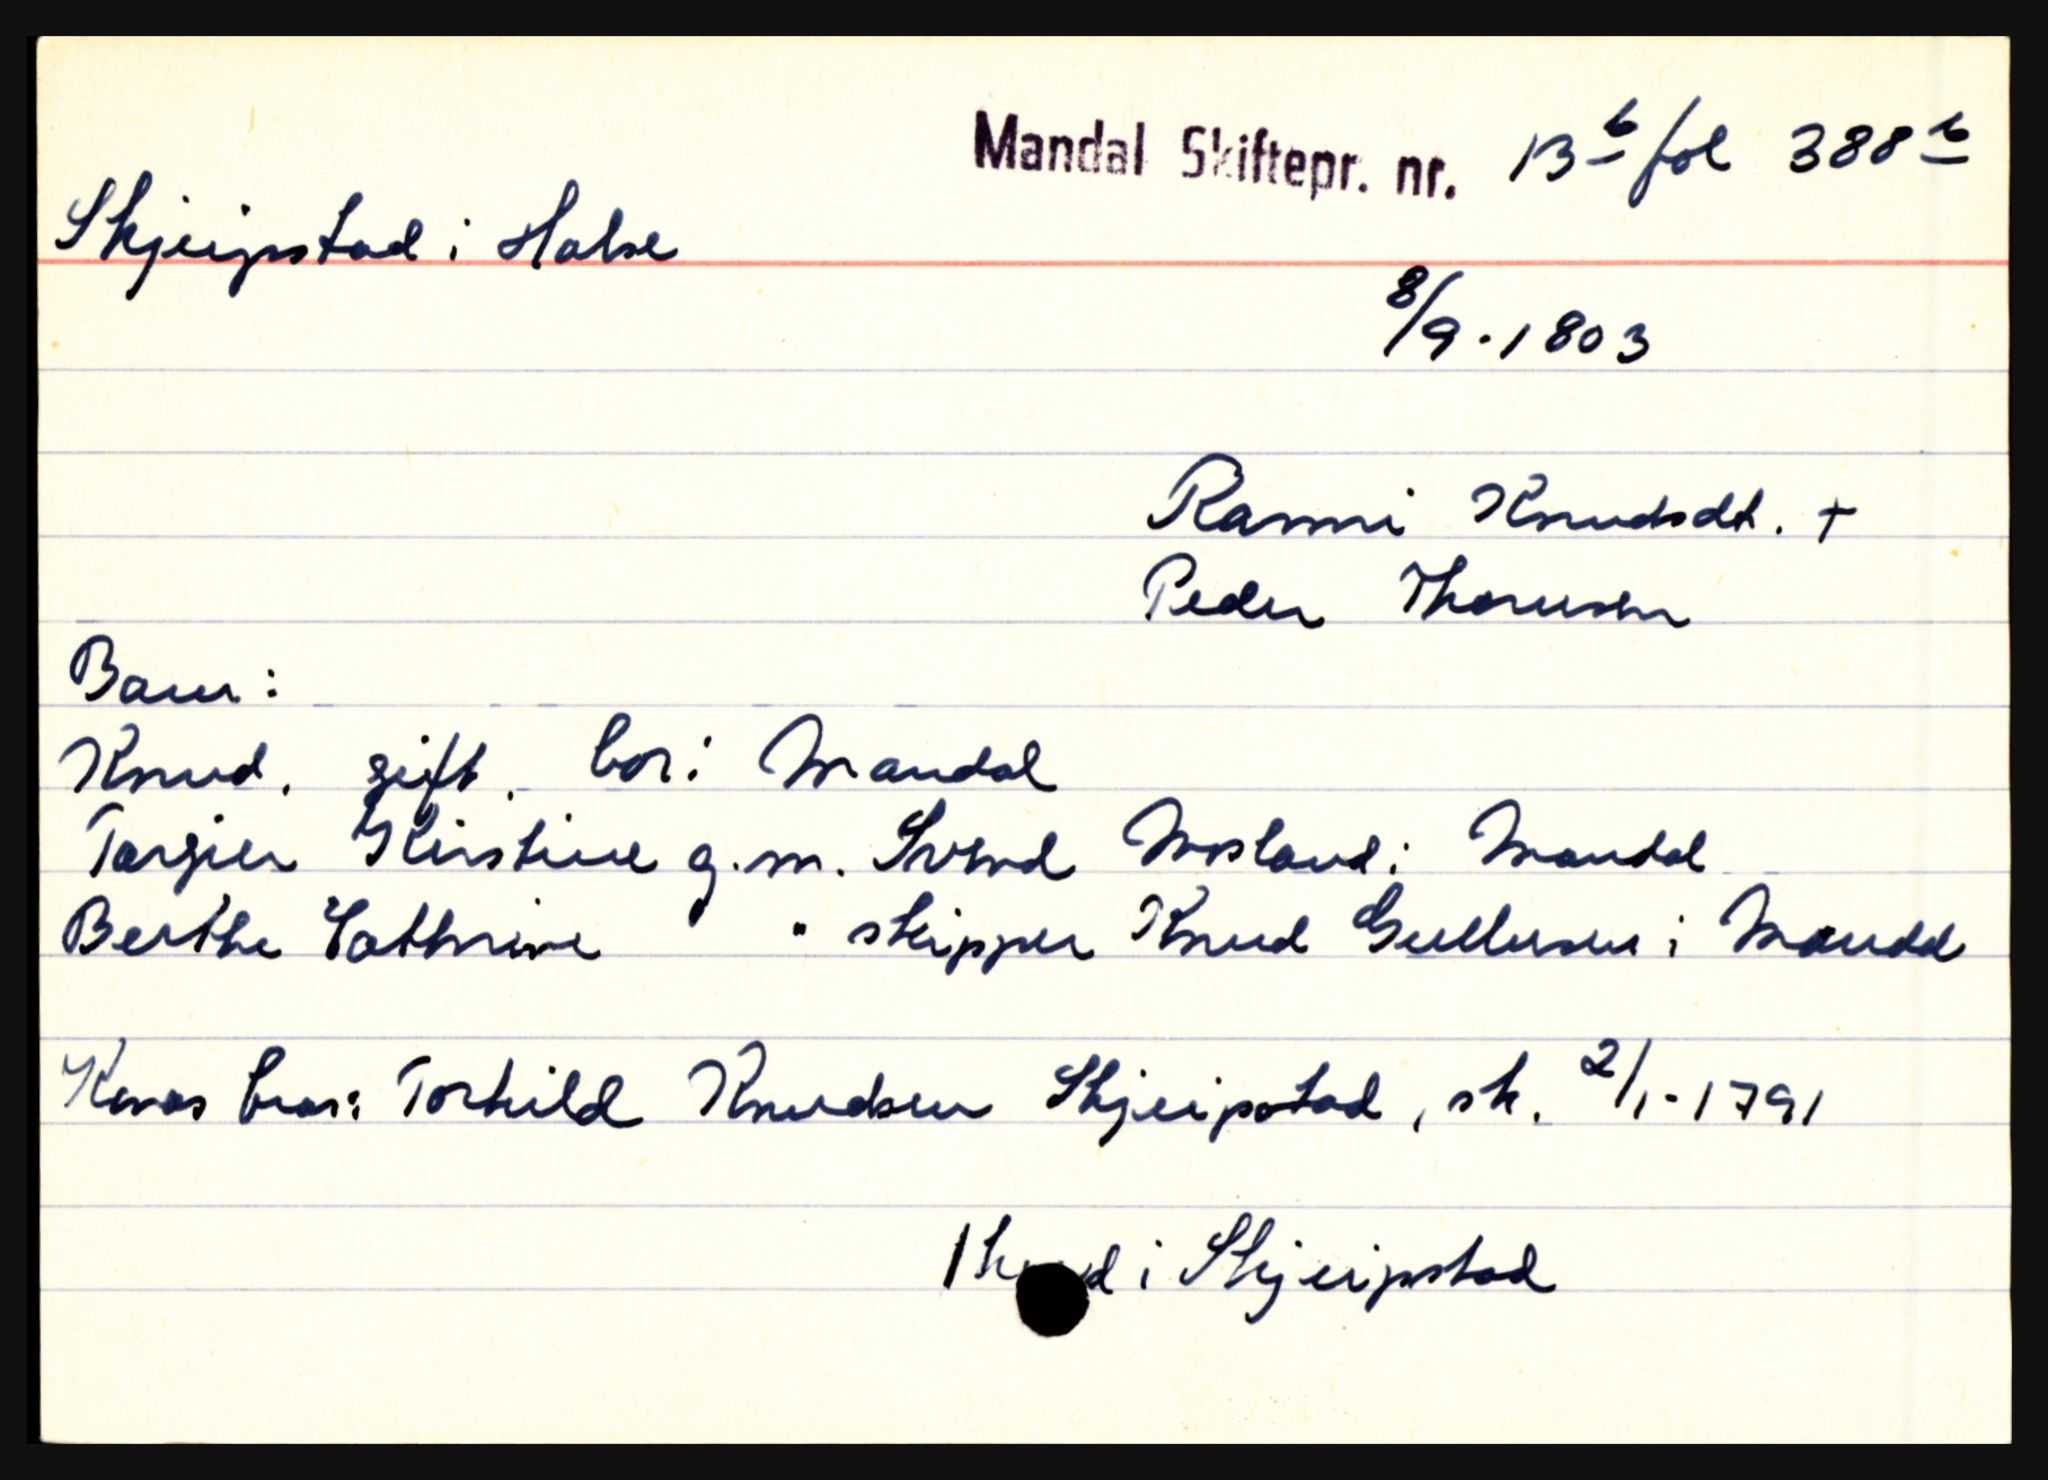 Mandal Skiftepr. nr. 13 b fol 388 b
Skjeipstad i Halse
8/9. 1803
Ranni Knudsdt. +
Peder Thorusen
Barn:
Knud, gift, bor i Mandal
Torgier Kirstine g.m. Svend Mosland i Mandal
Berthe Cathrine " skipper Knud Gullusen i Mandal
Konas bror: Torkild Knudsen Skjeipstad, sk. 2/1-1791
1 hud i Skjeipstad